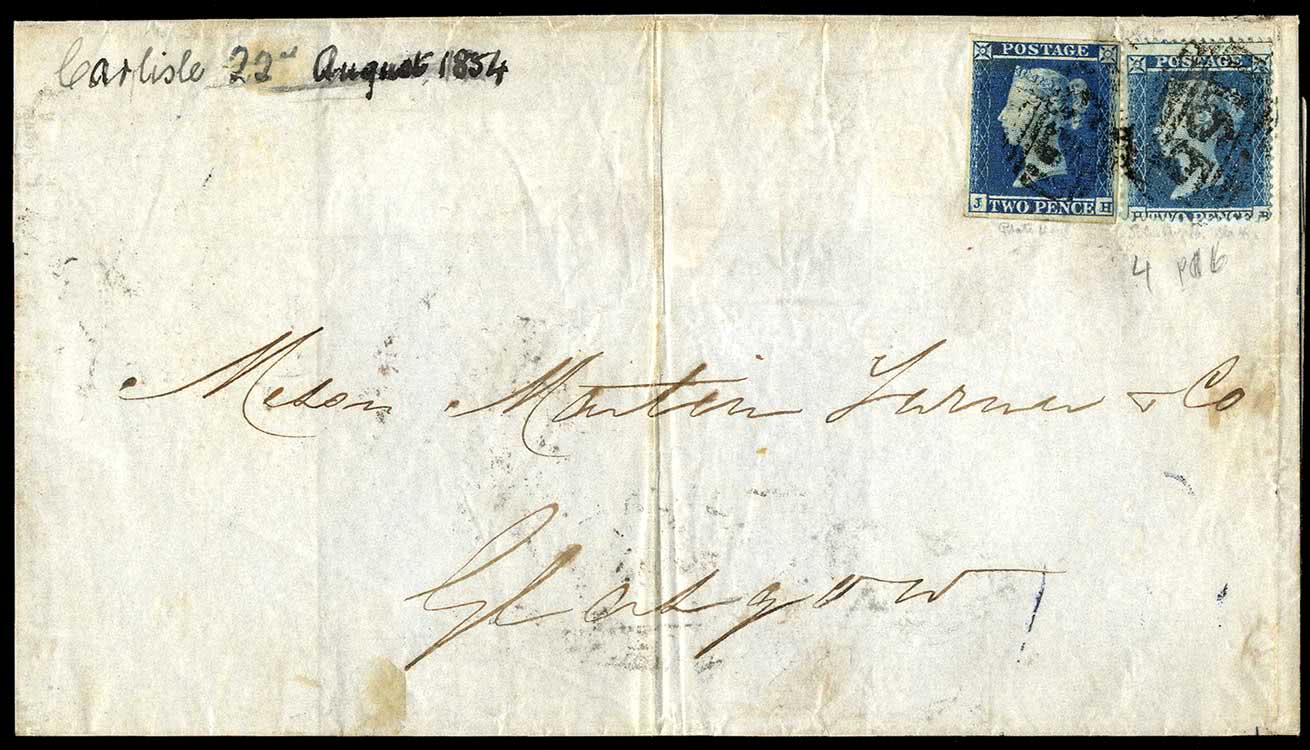 Carlisle 22nd August 1854
POSTAGE
J TWO PENCE H
POSTAGE
TWO PENCE
4 pl 6
Messrs Martin Turner & Co
Glasgow